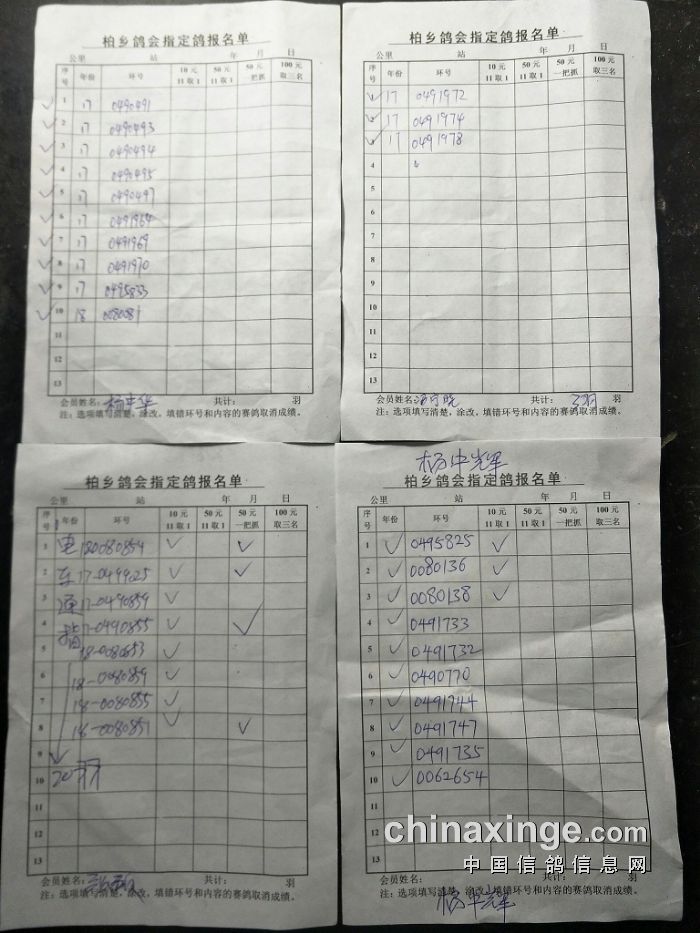 柏乡鸽会指定鸽报名单
公里 站 年 月 日
序号 年份 环号 10元 11取1 50元 11取1 50元 一把抓 100元 取三名
✓ 1 17 0490491
✓ 2 17 0490493
✓ 3 17 0490494
✓ 4 17 0490495
✓ 5 17 0490497
✓ 6 17 0491964
✓ 7 17 0491969
✓ 8 17 0491970
✓ 9 17 0495833
✓ 10 18 0080081
11
12
13
会员姓名： 杨中华 共计： 羽
注：选项填写清楚，涂改，填错环号和内容的赛鸽取消成绩。
柏乡鸽会指定鸽报名单
公里 站 年 月 日
序号 年份 环号 10元 11取1 50元 11取1 50元 一把抓 100元 取三名
✓ 1 17 0491972
✓ 2 17 0491974
✓ 3 17 0491978
4
5
6
7
8
9
10
11
12
13
会员姓名： 共计： 3羽 羽
注：选项填写清楚，涂改，填错环号和内容的赛鸽取消成绩。
柏乡鸽会指定鸽报名单
公里 站 年 月 日
序号 年份 环号 10元 11取1 50元 11取1 50元 一把抓 100元 取三名
1 电 18-0080854 ✓ ✓
2 车 17-0499025 ✓ ✓
3 通 17-0490859 ✓
4 指 17-0490855 ✓ ✓
5 18-0080853 ✓
6 18-0080859 ✓
7 18-0080855 ✓
8 18-0080851 ✓ ✓
9
10 20羽
11
12
13
会员姓名： 共计： 羽
注：选项填写清楚，涂改，填错环号和内容的赛鸽取消成绩。
杨中辉
柏乡鸽会指定鸽报名单
公里 站 年 月 日
序号 年份 环号 10元 11取1 50元 11取1 50元 一把抓 100元 取三名
1 ✓ 0495825 ✓
2 ✓ 0080136 ✓
3 ✓ 0080138 ✓
4 ✓ 0491733
5 ✓ 0491732
6 ✓ 0490770
7 ✓ 0491744
8 ✓ 0491747
9 ✓ 0491735
10 ✓ 0062654
11
12
13
会员姓名： 杨中辉 共计： 羽
注：选项填写清楚，涂改，填错环号和内容的赛鸽取消成绩。
chinaxinge.com
中国信鸽信息网